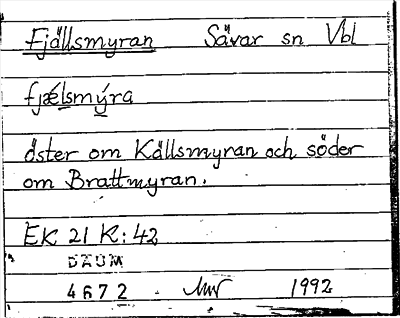 Fjällsmyran Sävar sn Vbl
fjǽlsmýra
öster om Källsmyran och söder
om Brattmyran.
EK 21 K:42
DAUM
4672 1992